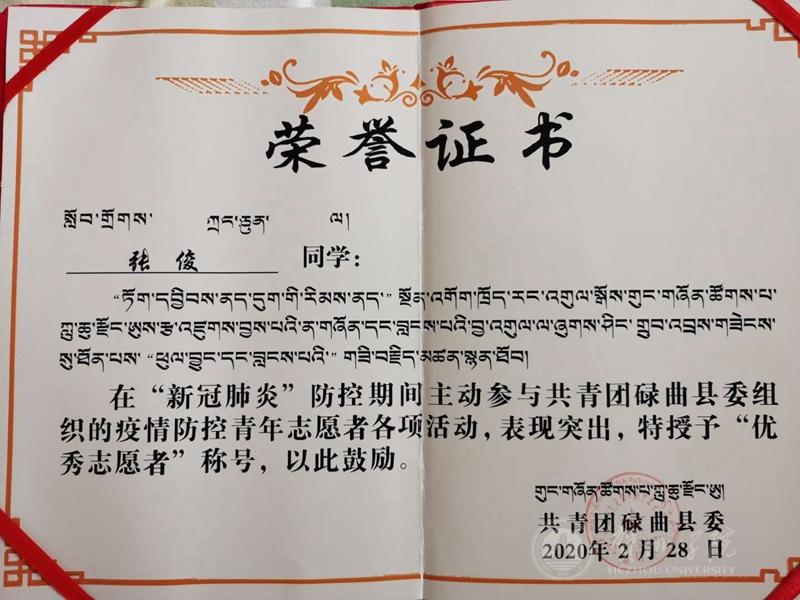 荣誉证书
སློབ་གྲོགས་ ཀྲང་ཅུན་ ལ།
张俊 同学：
“ཏོག་དབྱིབས་ནད་དུག་གི་རིམས་ནད་” སྔོན་འགོག་ཁྲོད་རང་འགུལ་སྒོས་གུང་གཞོན་ཚོགས་པ་
ཀླུ་ཆུ་རྫོང་ཨུས་རྩ་འཛུགས་བྱས་པའི་ན་གཞོན་དང་བླངས་པའི་བྱ་འགུལ་ལ་ཞུགས་ཤིང་ གྲུབ་འབྲས་གཟེངས་
སུ་ཐོན་པས་ “ཕུལ་བྱུང་དང་བླངས་པའི་” གཟི་བརྗིད་མཚན་སྙན་ཐོབ།
在“新冠肺炎”防控期间主动参与共青团碌曲县委组
织的疫情防控青年志愿者各项活动，表现突出，特授予“优
秀志愿者”称号，以此鼓励。
གུང་གཞོན་ཚོགས་པ་ཀླུ་ཆུ་རྫོང་ཨུ།
共青团碌曲县委
2020年2月28日
HEZHOU UNIVERSITY